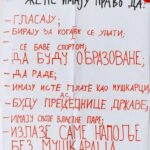 ЖЕНЕ ИМАЈУ ПРАВО ДА:
- ГЛАСАЈУ;
- БИРАЈУ ЗА КОГА ЋЕ СЕ УДАТИ;
- СЕ БАВЕ СПОРТОМ;
- ДА БУДУ ОБРАЗОВАНЕ;
- ДА РАДЕ;
- ИМАЈУ ИСТЕ ПЛАТЕ КАО МУШКАРЦИ
- БУДУ ПРЕДСЕДНИЦЕ ДРЖАВЕ;
- ИМАЈУ СВОЈЕ ВЛАСТИТЕ ПАРЕ;
- ИЗЛАЗЕ САМЕ НАПОЉЕ
БЕЗ МУШКАРАЦА